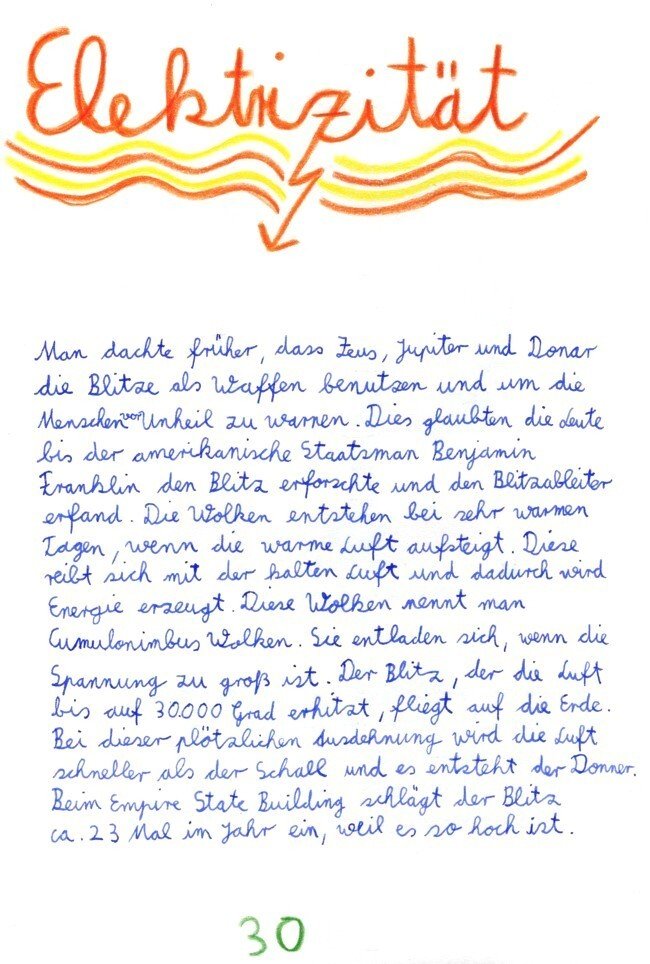 Elektrizität
Man dachte früher, dass Zeus, Jupiter und Donar
die Blitze als Waffen benutzen und um die
Menschen vor Unheil zu warnen. Dies glaubten die Leute
bis der amerikanische Staatsman Benjamin
Franklin den Blitz erforschte und den Blitzableiter
erfand. Die Wolken entstehen bei sehr warmen
Tagen, wenn die warme Luft aufsteigt. Diese
reibt sich mit der kalten Luft und dadurch wird
Energie erzeugt. Diese Wolken nennt man
Cumulonimbus Wolken. Sie entladen sich, wenn die
Spannung zu groß ist. Der Blitz, der die Luft
bis auf 30.000 Grad erhitzt, fliegt auf die Erde.
Bei dieser plötzlichen Ausdehnung wird die Luft
schneller als der Schall und es entsteht der Donner.
Beim Empire State Building schlägt der Blitz
ca. 23 Mal im Jahr ein, weil es so hoch ist.
30